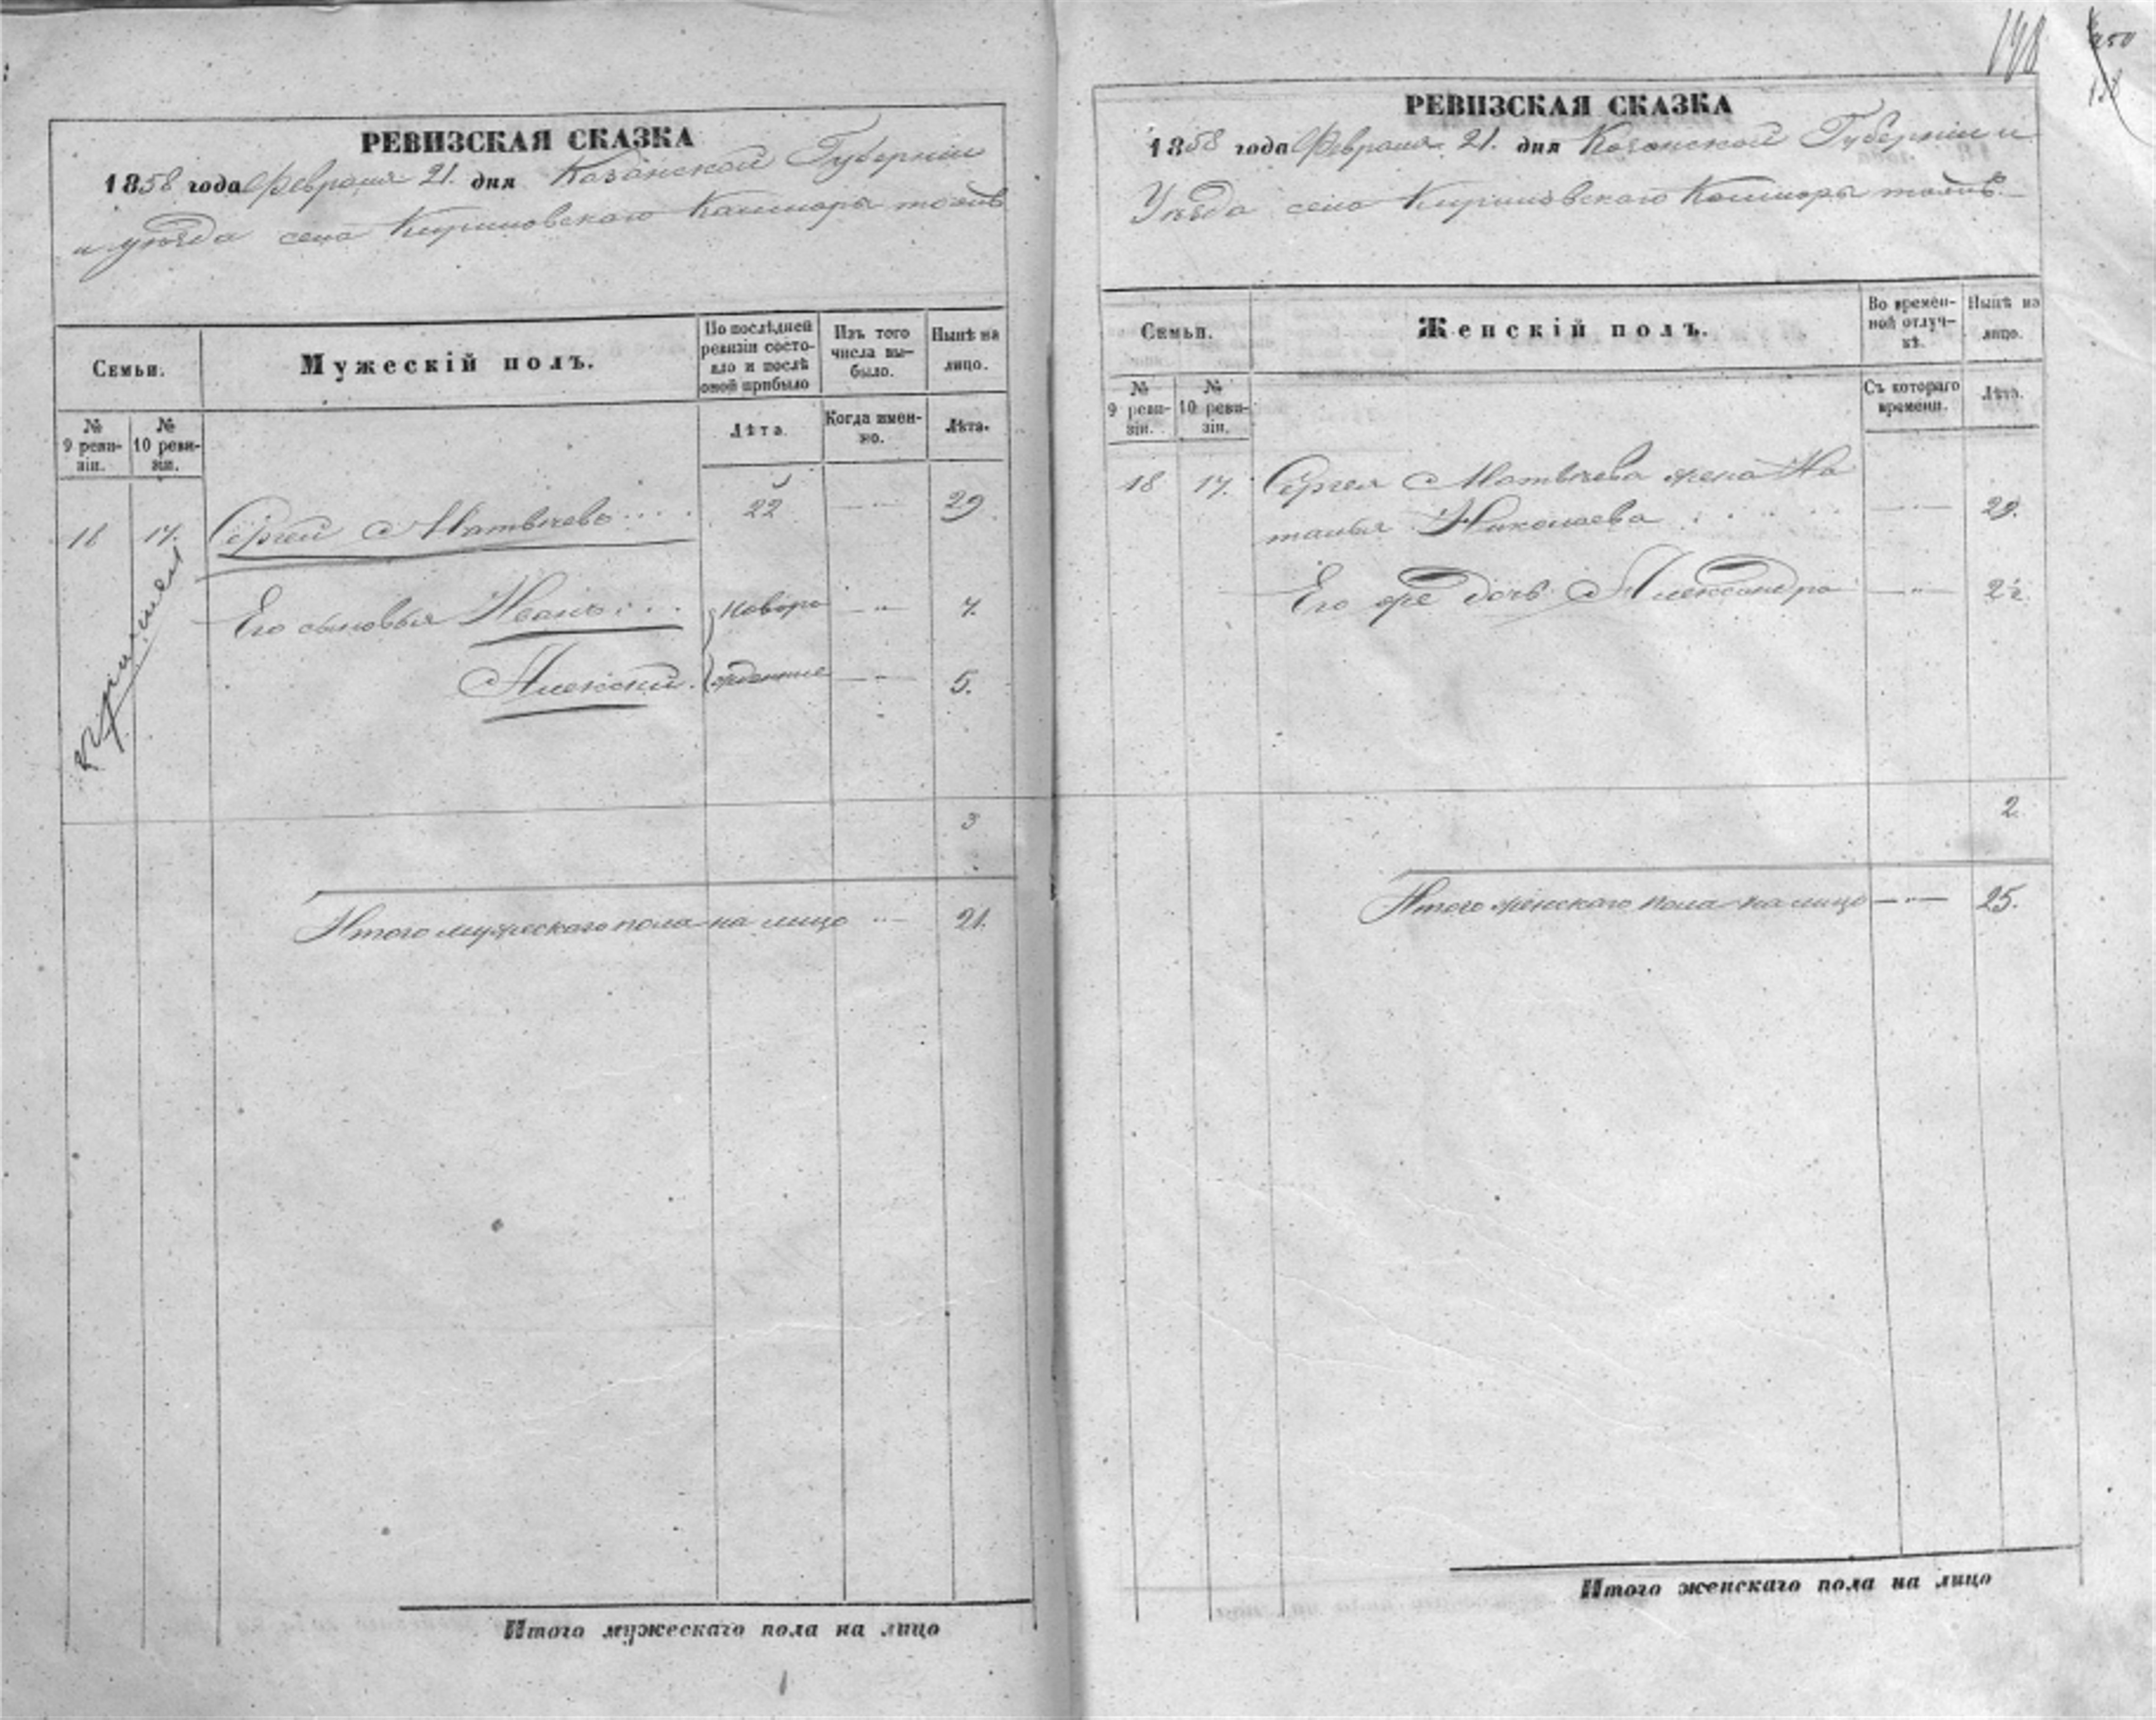 РЕВИЗСКАЯ СКАЗКА
1858 года Февраля 21. дня Казанской Губерніи
и уѣзда села тожъ
Семьи.
Мужескій полъ.
По послѣдней ревизіи состояло и послѣ оной прибыло
Изъ того числа выбыло.
Нынѣ на лицо.
№ 9 ревизіи.
№ 10 ревизіи.
Лѣта.
Когда именно.
Лѣта.
18 17. Сергей Матвѣевъ .... 22 —"— 29
Его сыновья Иванъ ... новоро —"— 7.
Алексей. жденные —"— 5.
3
Итого мужескаго пола на лицо "— 21.
Итого мужескаго пола на лицо
148
РЕВИЗСКАЯ СКАЗКА
1858 года Февраля 21. дня Казанской Губерніи и
Уѣзда села тожъ.
Семьи.
Женскій полъ.
Во временной отлучкѣ.
Нынѣ на лицо.
№ 9 ревизіи.
№ 10 ревизіи.
Съ котораго времени.
Лѣта.
18 17. Сергея Матвѣева жена На
талья Николаева . . . . —"— 29.
Его же дочь Александра —"—
2
Итого женскаго пола на лицо —"— 25.
Итого женскаго пола на лицо